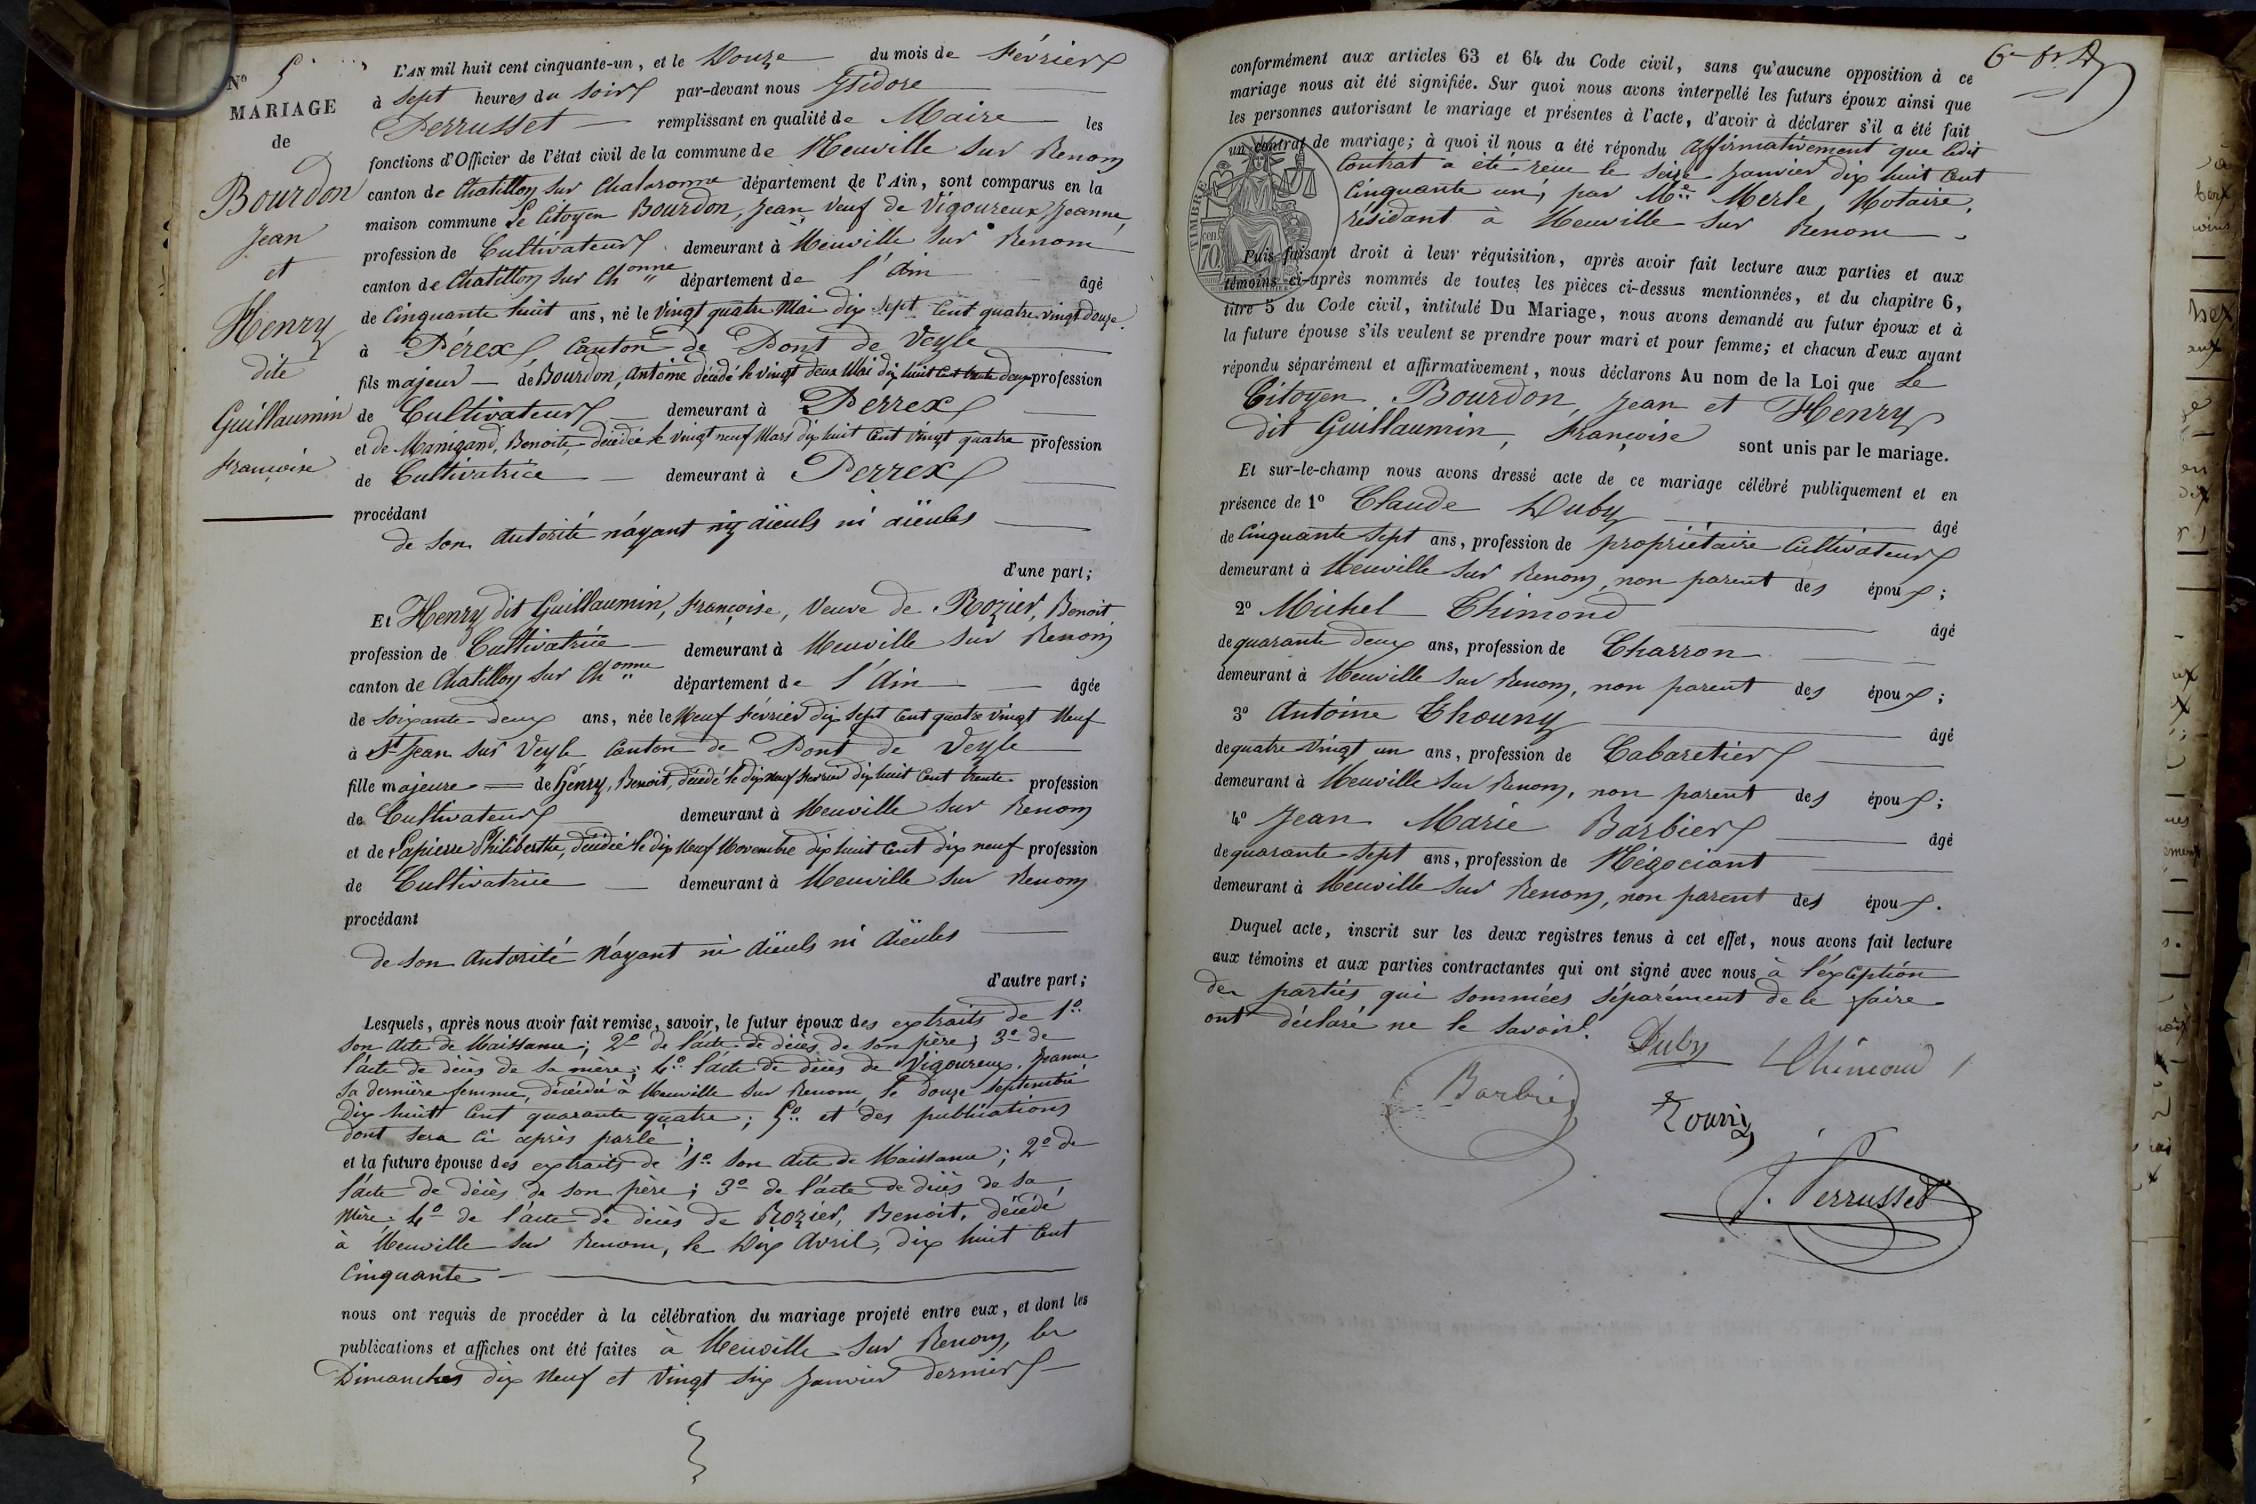 N° 5
MARIAGE
de
Bourdon
Jean
et
Henry
dite
Guillaumin
Françoise
L'AN mil huit cent cinquante-un, et le Douze du mois de Février
à Sept heures du Soir par-devant nous Isidore
Perrusset remplissant en qualité de Maire les
fonctions d'Officier de l'état civil de la commune de Neuville sur Renom
canton de Chatillon sur Chalaronne département de l'Ain, sont comparus en la
maison commune Le Citoyen Bourdon, Jean, Veuf de Vigoureux, Jeanne,
profession de Cultivateur demeurant à Neuville sur Renom
canton de Chatillon sur Chonne département de l'Ain âgé
de Cinquante huit ans, né le Vingt quatre Mai dix Sept Cent quatre vingt Douze
à Pérex, Canton de Pont de Veyle
fils majeur de Bourdon, Antoine décédé le vingt deux Mai dix huit Cent trente deux profession
de Cultivateur demeurant à Perrex
et de Manigand, Benoite, décédée le Vingt neuf Mars dix huit Cent Vingt quatre profession
de Cultivatrice demeurant à Perrex
procédant
de son autorité n'ayant ny aïeuls ni aïeules
d'une part;
Et Henry dit Guillaumin, Françoise, Veuve de Rozier, Benoit
profession de Cultivatrice demeurant à Neuville sur Renom
canton de Chatillon sur Chonne département de l'Ain âgée
de Soixante deux ans, née le Neuf Février dix Sept Cent quatre vingt Neuf
à St Jean sur Veyle Canton de Pont de Veyle
fille majeure de Henry, Benoit, décédé le dix neuf février dix huit Cent trente profession
de Cultivateur demeurant à Neuville sur Renom
et de Lapierre Philiberthe, décédée le dix Neuf Novembre dix huit Cent dix neuf profession
de Cultivatrice demeurant à Neuville sur Renom
procédant
de son autorité N'ayant ni aïeuls ni aïeules
d'autre part;
Lesquels, après nous avoir fait remise, savoir, le futur époux des extraits de 1°
son acte de Naissance; 2° de l'acte de décès de son père; 3° de
l'acte de décès de sa mère; 4° l'acte de décès de Vigoureux, Jeanne
sa dernière femme, décédée à Neuville sur Renom, le douze Septembre
Dix huit Cent quarante quatre; 5° et des publications
dont sera ci après parlé;
et la future épouse des extraits de 1° son acte de Naissance; 2° de
l'acte de décès de son père; 3° de l'acte de décès de sa
Mère 4° de l'acte de décès de Rozier, Benoit, décédé
à Neuville sur Renom, le Dix Avril, dix huit Cent
Cinquante
nous ont requis de procéder à la célébration du mariage projeté entre eux, et dont les
publications et affiches ont été faites à Neuville sur Renom, les
Dimanches dix Neuf et Vingt Six Janvier dernier
conformément aux articles 63 et 64 du Code civil, sans qu'aucune opposition à ce
mariage nous ait été signifiée. Sur quoi nous avons interpellé les futurs époux ainsi que
les personnes autorisant le mariage et présentes à l'acte, d'avoir à déclarer s'il a été fait
un contrat de mariage; à quoi il nous a été répondu Affirmativement que ledit
Contrat a été reçu le Seize Janvier dix huit Cent
Cinquante un, par Me Merle Notaire,
résidant à Neuville sur Renom
TIMBRE
70 cen
Puis faisant droit à leur réquisition, après avoir fait lecture aux parties et aux
témoins ci-après nommés de toutes les pièces ci-dessus mentionnées, et du chapitre 6,
titre 5 du Code civil, intitulé Du Mariage, nous avons demandé au futur époux et à
la future épouse s'ils veulent se prendre pour mari et pour femme; et chacun d'eux ayant
répondu séparément et affirmativement, nous déclarons Au nom de la Loi que Le
Citoyen Bourdon, Jean et Henry
dit Guillaumin, Françoise sont unis par le mariage.
Et sur-le-champ nous avons dressé acte de ce mariage célébré publiquement et en
présence de 1° Claude Duby âgé
de Cinquante Sept ans, profession de propriétaire Cultivateur
demeurant à Neuville sur Renom, non parent des époux;
2° Michel Thimond âgé
de quarante deux ans, profession de Charron
demeurant à Neuville sur Renom, non parent des époux;
3° Antoine Thouny âgé
de quatre Vingt un ans, profession de Cabaretier
demeurant à Neuville sur Renom, non parent des époux;
4° Jean Marie Barbier âgé
de quarante Sept ans, profession de Négociant
demeurant à Neuville sur Renom, non parent des époux.
Duquel acte, inscrit sur les deux registres tenus à cet effet, nous avons fait lecture
aux témoins et aux parties contractantes qui ont signé avec nous à l'exception
des parties qui sommées séparément de le faire
ont déclaré ne le savoir.
Duby Thimond
Barbier
J. Perrusset